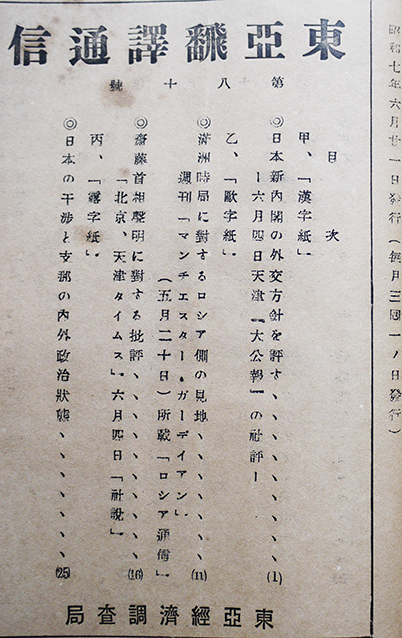 昭和七年六月廿一日發行（每月三囘一ノ日發行）
東亞飜譯通信
第八十號
目次
甲、「漢字紙」。
◎日本新內閣の外交方針を評す、、、、、、、、(1)
ー六月四日天津「大公報」の社評ー
乙、「歐字紙」。
◎滿洲時局に對するロシア側の見地、、、、、、(11)
週刊「マンチエスター・ガーデイアン」
（五月二十日）所載「ロシア通信」。
◎齋藤首相聲明に對する批評、、、、、、、、、(16)
「北京、天津タイムス」。六月四日「社說」。
丙、「露字紙」。
◎日本の干涉と支那の內外政治狀態、、、、、、(25)
東亞經濟調查局